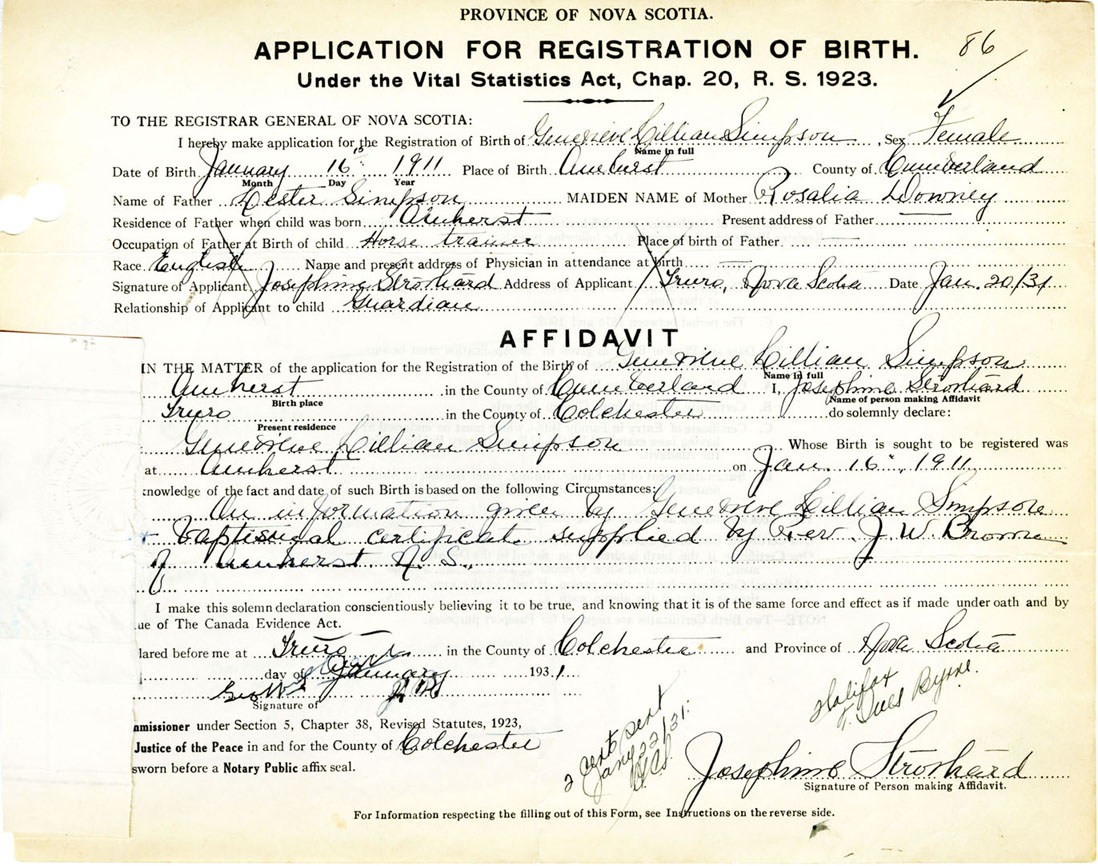 PROVINCE OF NOVA SCOTIA.
APPLICATION FOR REGISTRATION OF BIRTH. 86
Under the Vital Statistics Act, Chap. 20, R. S. 1923.
TO THE REGISTRAR GENERAL OF NOVA SCOTIA:
I hereby make application for the Registration of Birth of Genevieve Lillian Simpson, Sex Female
Name in full
Date of Birth January 16th 1911 Place of Birth Amherst County of Cumberland
Month Day Year
Name of Father Lester Simpson MAIDEN NAME of Mother Rosalia Downey
Residence of Father when child was born Amherst Present address of Father
Occupation of Father at Birth of child Horse trainer Place of birth of Father
Race English Name and present address of Physician in attendance at birth
Signature of Applicant Josephine Strothard Address of Applicant Truro, Nova Scotia Date Jan. 20/31
Relationship of Applicant to child Guardian
AFFIDAVIT
IN THE MATTER of the application for the Registration of the Birth of Genevieve Lillian Simpson
Name in full
Amherst in the County of Cumberland I, Josephine Strothard
Birth place (Name of person making Affidavit
Truro in the County of Colchester do solemnly declare:
Present residence
Genevieve Lillian Simpson Whose Birth is sought to be registered was
at Amherst on Jan. 16th, 1911
knowledge of the fact and date of such Birth is based on the following Circumstances:
On information given by Genevieve Lillian Simpson
+ baptismal certificate supplied by Rev. J. W. Brown
of Amherst N. S.
I make this solemn declaration conscientiously believing it to be true, and knowing that it is of the same force and effect as if made under oath and by
ue of The Canada Evidence Act.
lared before me at Truro in the County of Colchester and Province of Nova Scotia
day of January 1931
Signature of
mmissioner under Section 5, Chapter 38, Revised Statutes, 1923,
Justice of the Peace in and for the County of Colchester
sworn before a Notary Public affix seal.
2 certs sent
Jany 22/31.
Halifax
Josephine Strothard
Signature of Person making Affidavit.
For Information respecting the filling out of this Form, see Instructions on the reverse side.